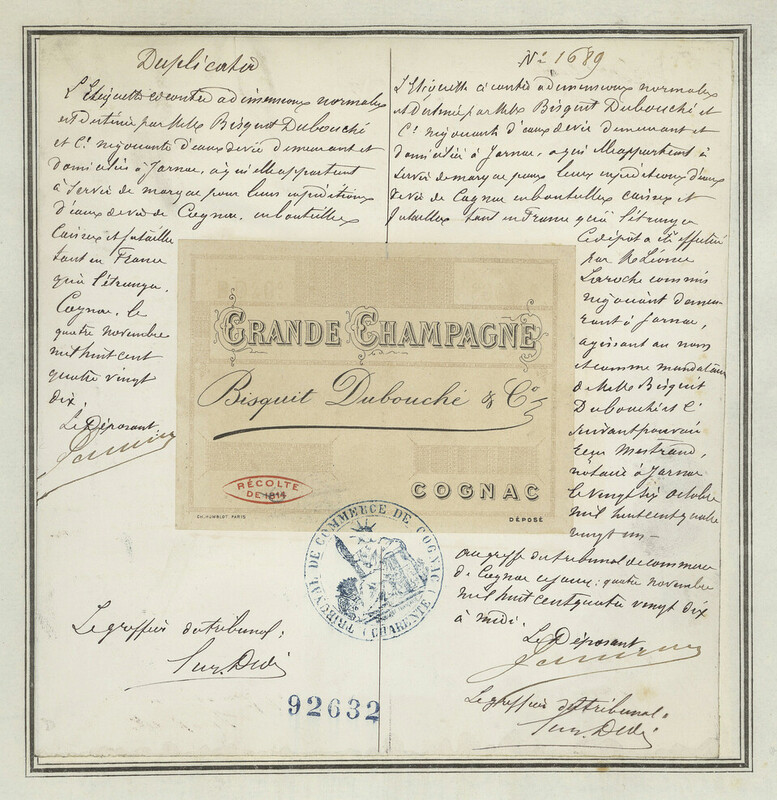 Duplicata
L'Etiquette ci contre a dimensions normales
est destinée par MMrs Bisquit Dubouché
et Cie négociants d'eaux de vie demeurant et
domiciliés à Jarnac, à qui elle appartient
à servir de marque pour leurs expéditions
d'eaux de vie de Cognac, en bouteilles
caisses et futailles
tant en France
qu'à l'étranger.
Cognac, le
quatre novembre
mil huit cent
quatre vingt
dix.
Le Déposant
Le greffier du tribunal:
No 1689
L'Etiquette ci contre a dimensions normales
est destinée par MMrs Bisquit Dubouché et
Cie négociants d'eaux de vie demeurant et
domiciliés à Jarnac, à qui elle appartient à
servir de marque pour leurs expéditions d'eaux
de vie de Cognac en bouteilles caisses et
futailles tant en France qu'à l'étranger
Ce dépôt a été effectué
par M. Léonce
Laroche commis
négociant demeu
rant à Jarnac,
agissant au nom
et comme mandataire
de MMrs Bisquit
Dubouché et Cie
suivant pouvoir
reçu Mestraud,
notaire à Jarnac
le vingt six octobre
mil huit cent quatre
vingt un —
au greffe du tribunal de commerce
de Cognac ce jour: quatre novembre
mil huit cent quatre vingt dix
à midi.
Le Déposant
Le greffier du tribunal:
GRANDE CHAMPAGNE
Bisquit Dubouché & Co
RÉCOLTE
DE 1814
COGNAC
CH. HUMBLOT, PARIS
DÉPOSÉ
TRIBUNAL DE COMMERCE DE COGNAC
(CHARENTE)
92632